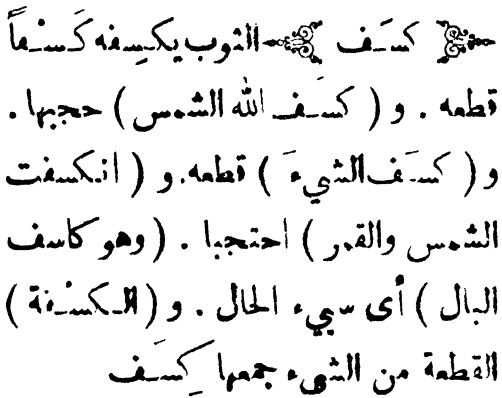 ﴿ كسَف ﴾ الثوب يكسِفه كَسْفاً
قطعه . و ( كسَف الله الشمس ) حجبها .
و ( كسَف الشيءَ ) قطعه . و ( انكسفت
الشمس والقمر ) احتجبا . ( وهو كاسف
البال ) أى سييء الحال . و ( الكسْفة )
القطعة من الشيء جمعها كِسَف